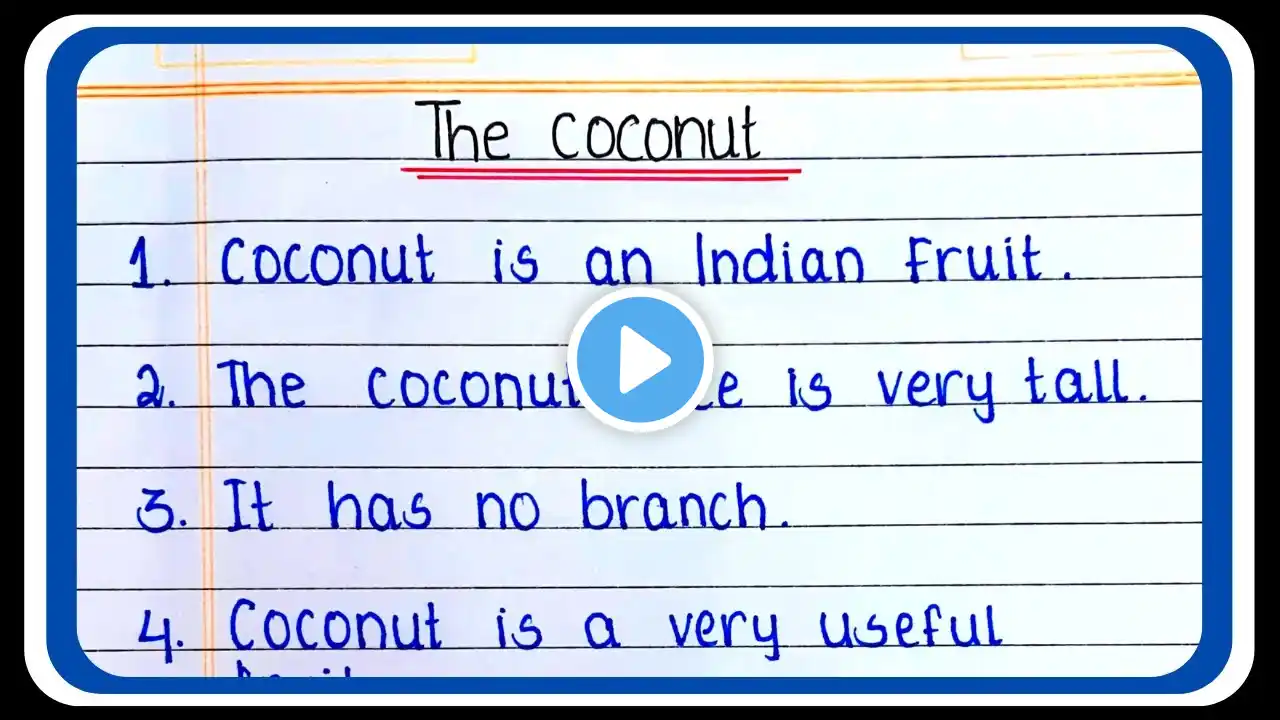 The coconut
1. Coconut is an Indian Fruit.
2. The coconut is very tall.
3. It has no branch.
4. Coconut is a very useful